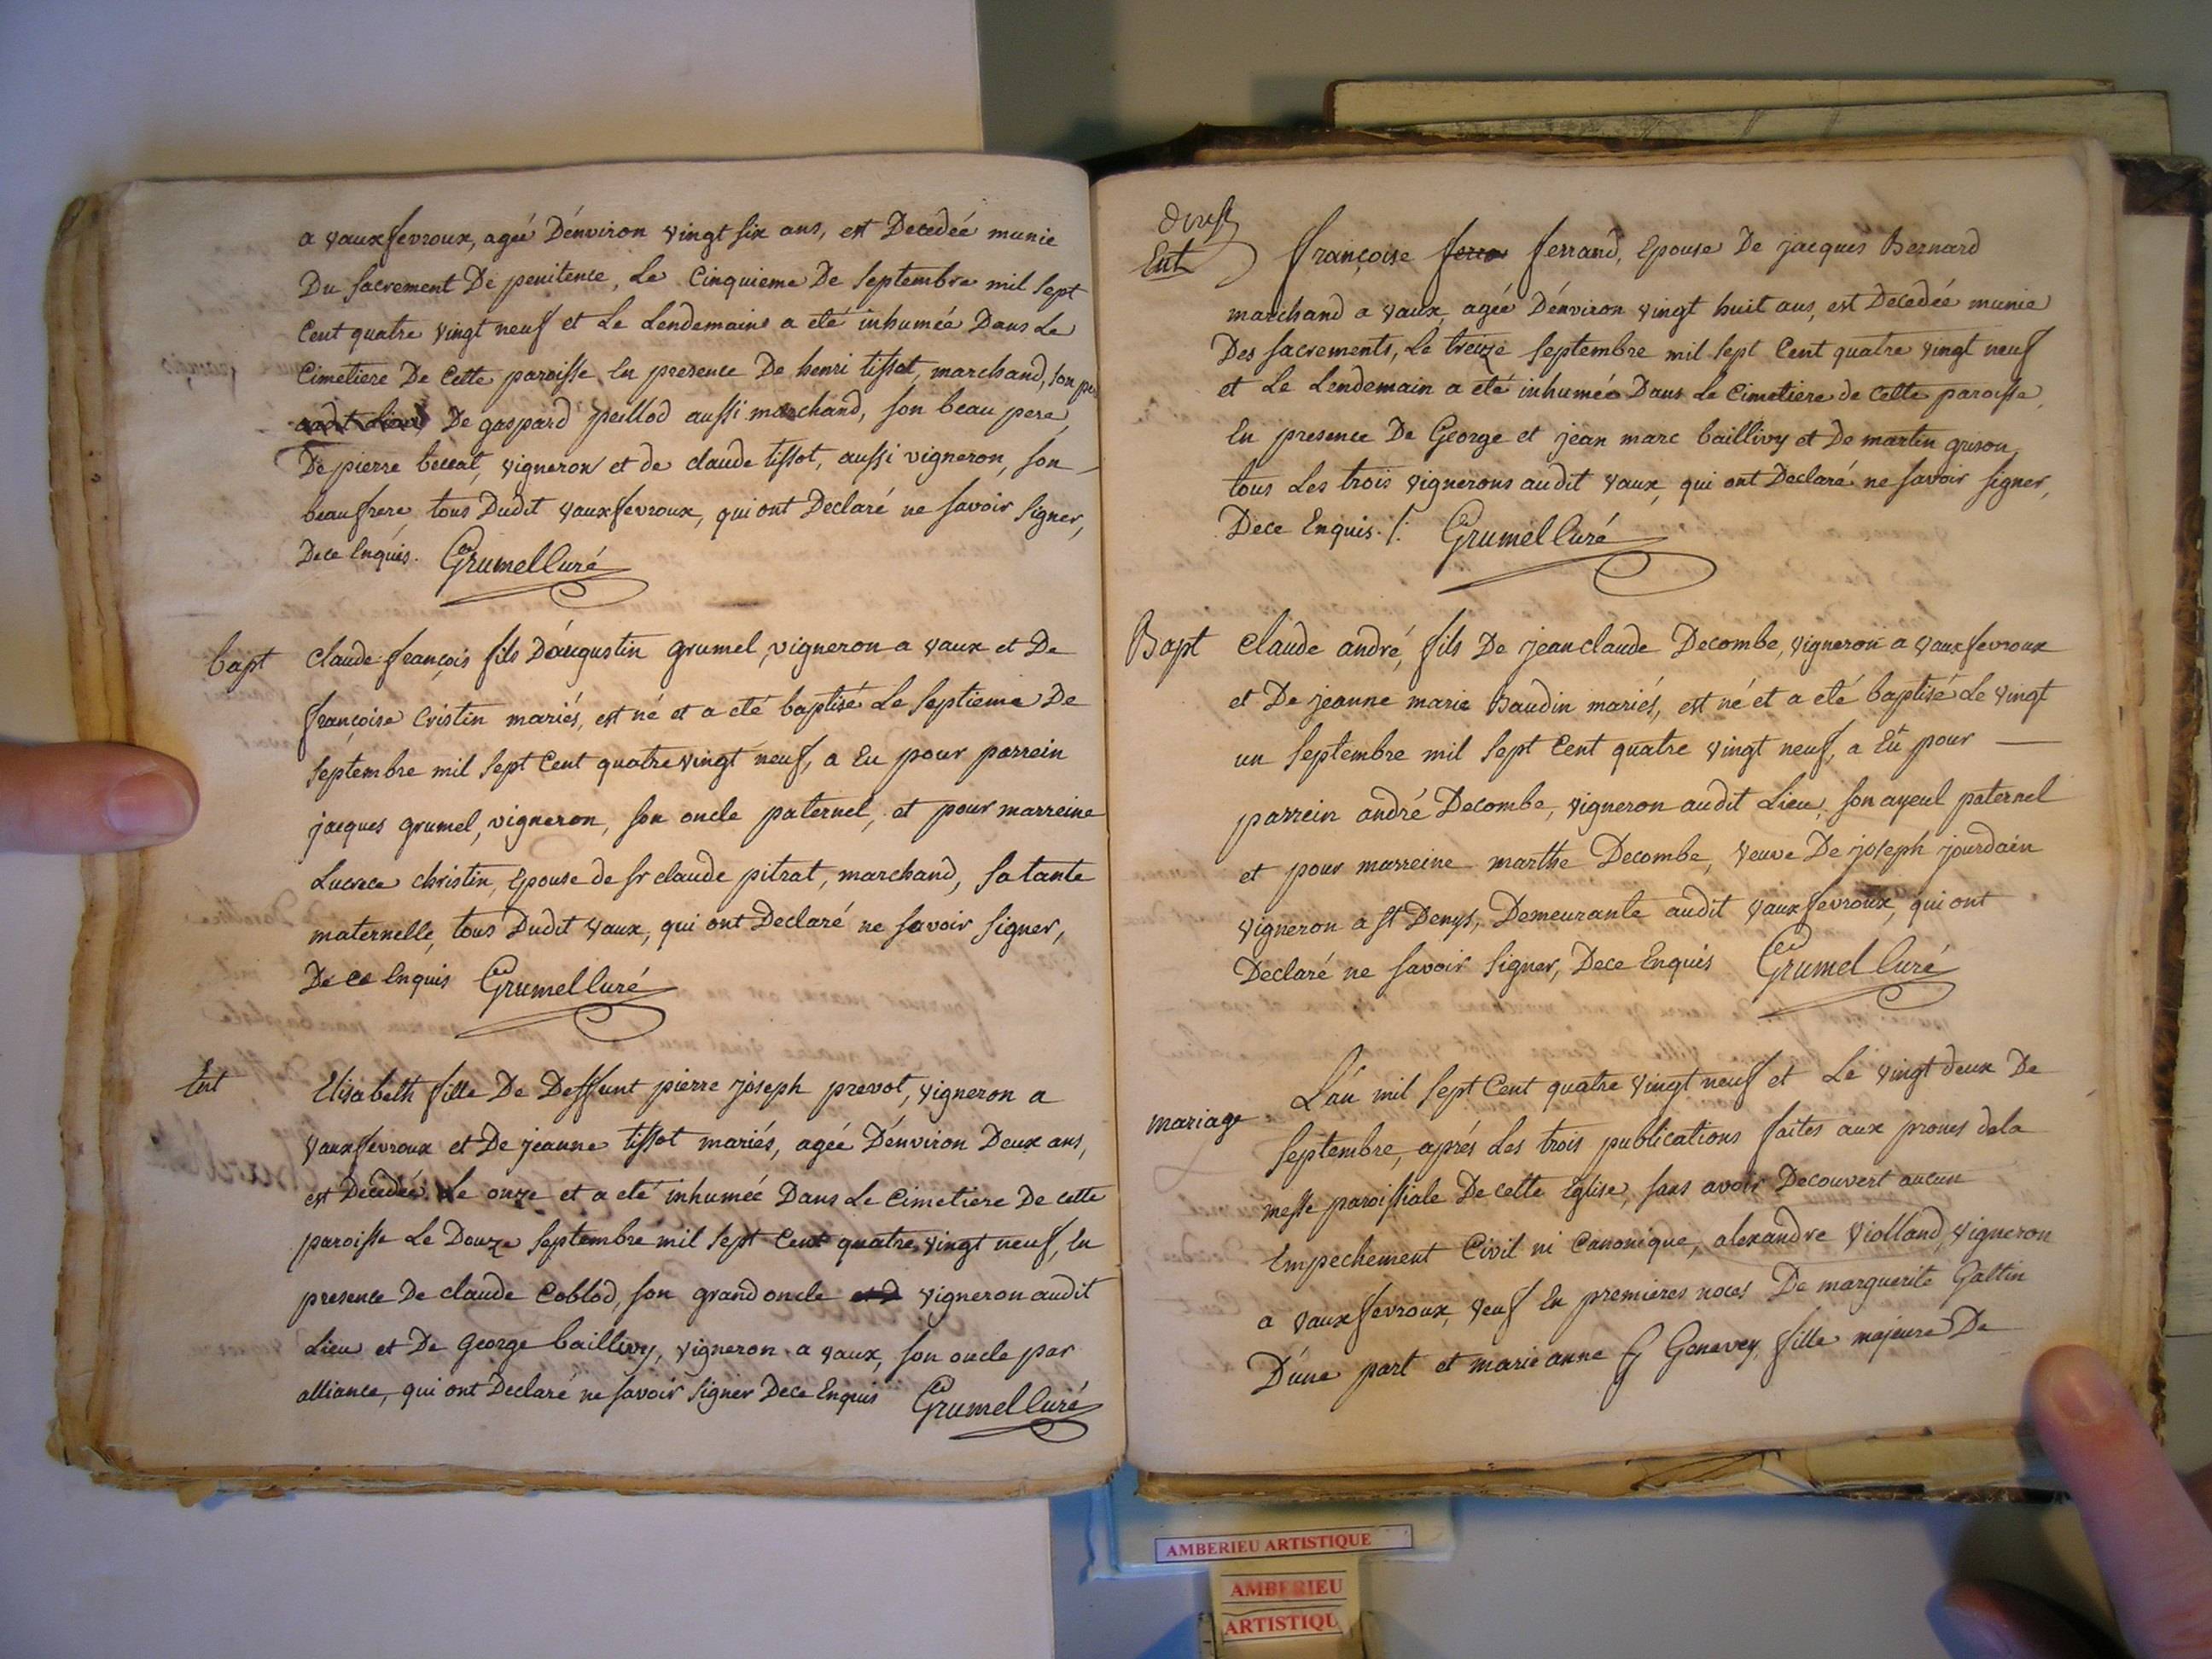 a vauxfevroux, agée D'énviron vingt six ans, est Decedée munie
Du sacrement De penitence, Le Cinquieme De septembre mil sept
Cent quatre vingt neuf et Le Lendemain a eté inhumée Dans Le
Cimetiere De Cette paroisse En presence De henri tissot, marchand, son
De gaspard peillod aussi marchand, son beau pere,
De pierre beccat, vigneron et de claude tissot, aussi vigneron, son
beaufrere, tous Dudit vauxfevroux, qui ont Declaré ne savoir signer,
Dece Enquis. Grumel Curé
bapt Claude françois fils D'augustin grumel, vigneron a vaux et De
françoise Cristin mariés, est né et a eté baptisé Le septieme De
septembre mil sept Cent quatre vingt neuf, a Eu pour parrein
jacques grumel, vigneron, son oncle paternel, et pour marreine
Lucrece christin, Epouse de sr claude pitrat, marchand, sa tante
maternelle, tous Dudit vaux, qui ont Declaré ne savoir signer,
De ce Enquis Grumel Curé
Ent Elisabeth fille De Deffunt pierre joseph prevot, vigneron a
vauxfevroux et De jeanne tissot mariés, agée D'énviron Deux ans,
est Decedée Le onze et a eté inhumée Dans Le Cimetiere De cette
paroisse Le Douze septembre mil sept Cent quatre vingt neuf, En
presence De claude Coblod, son grand oncle vigneron audit
Lieu et De George baillivy, vigneron a vaux, son oncle par
alliance, qui ont Declaré ne savoir signer Dece Enquis Grumel Curé
Ent françoise ferrand, Epouse De jacques Bernard
marchand a vaux, agée D'énviron vingt huit ans, est Decedée munie
Des sacrements, Le treize septembre mil sept Cent quatre vingt neuf
et Le Lendemain a eté inhumée Dans Le Cimetiere de Cette paroisse,
En presence De George et jean marc baillivy et De martin grison,
tous Les trois vignerons audit vaux, qui ont Declaré ne savoir signer,
Dece Enquis ./. Grumel Curé
Bapt Claude andré, fils De jean claude Decombe, vigneron a vauxfevroux
et De jeanne marie Baudin mariés, est né et a eté baptisé Le vingt
un septembre mil sept Cent quatre vingt neuf, a Eu pour
parrein andré Decombe, vigneron audit Lieu, son ayeul paternel
et pour marreine marthe Decombe, veuve De joseph jourdain
vigneron a st Denys, Demeurante audit vauxfevroux, qui ont
Declaré ne savoir signer, Dece Enquis Grumel Curé
L'an mil sept Cent quatre vingt neuf et Le vingt deux De
mariage septembre, aprés Les trois publications faites aux prones dela
messe paroissiale De cette Eglise, sans avoir Decouvert aucun
Empechement Civil ni Canonique, alexandre Violland, vigneron
a vauxfevroux, veuf En premieres noces De marguerite Galtin
D'une part et marie anne G Genevey, fille majeure De
AMBERIEU ARTISTIQUE
AMBERIEU
ARTISTIQU